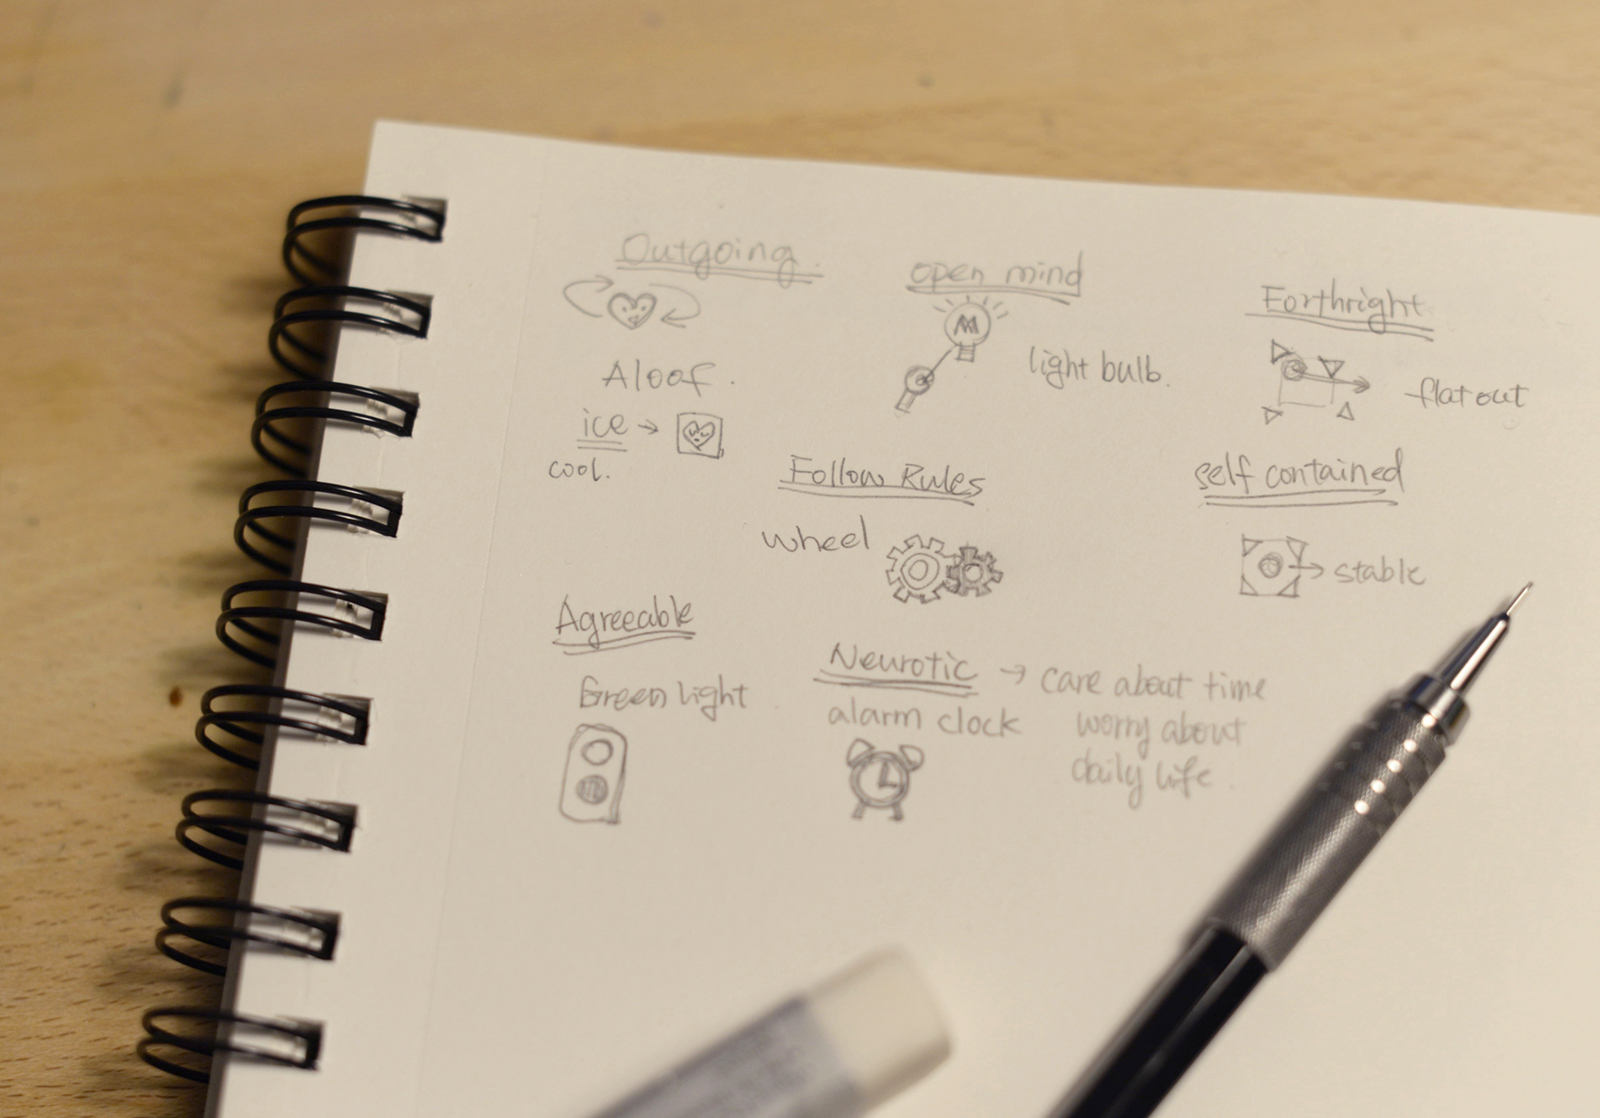 Outgoing.
Aloof.
ice →
cool.
open mind
light bulb.
Forthright
flat out
Follow Rules
wheel
self contained
stable
Agreeable
Green light
Neurotic → care about time
alarm clock
worry about
daily life.